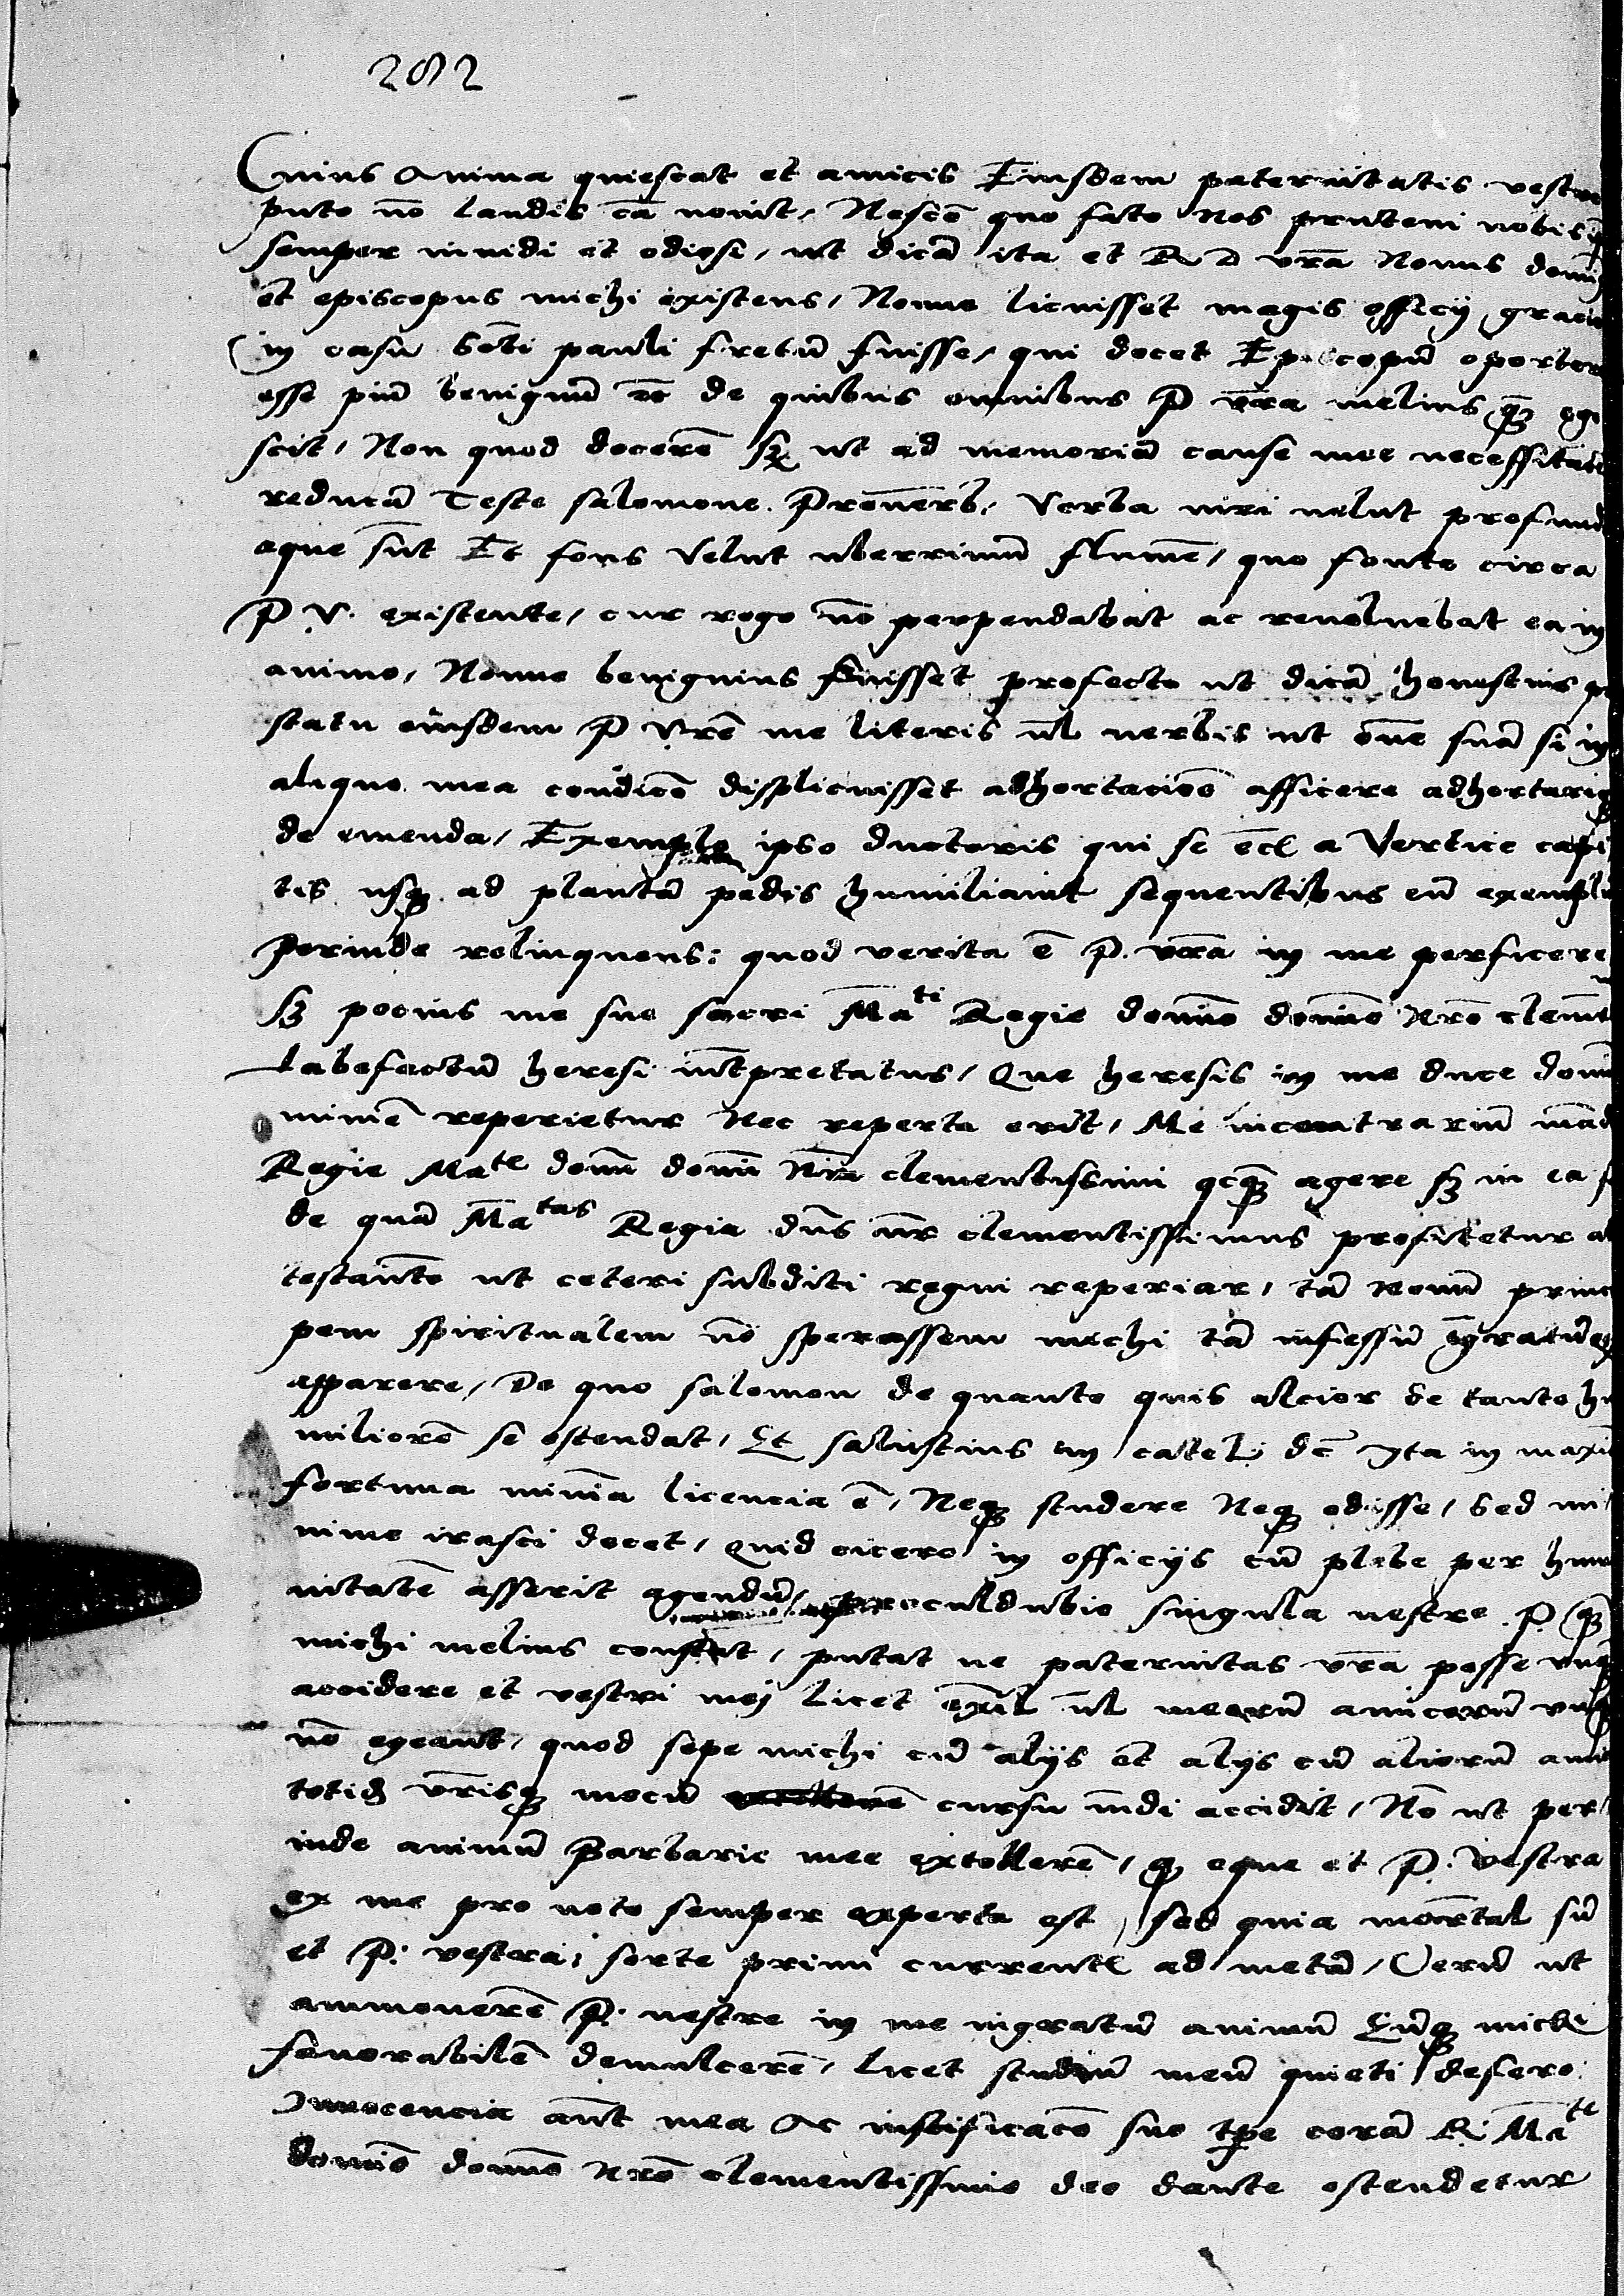 282
Cuius anima quiescat et amicis Eiusdem paternitatis vestre
puto nō laudis cā nouit, Nescō quo facto Nos pruteni vobis
semper inuidi et odiosi, ut dicā ita et R D vr̄a Nouus domi
et episcopus michi existens, Nonne licuisset magis officij gracia
in casu Sc̄ti pauli fretū fuisse, qui docet Episcopū oportere
esse piū benignū &c de quibus omnibus P vr̄a melius qȝ ego
scit, Non quod docerē sȝ ut ad memoriā cause mee necessitati
reducā Teste salomone. Prouerb, Verba uiri uelut profund
aque sūt Et fons velut uberrimū flumē, quo fonte circa
P V. existente, cur rogo nō perpendebat ac reuoluebat ea in
animo, Nonne benignius fuisset profecto ut dicā honestius p
statu eiusdem P Vrē me literis ul uerbis ut oue suā si in
aliquo mea condicō displicuisset adhortacioō afficere adhortariqȝ
de emenda, Exemplo ipso ductoris qui se ecl a Vertice capi
tis usqȝ ad plantā pedis humiliauit sequentibus eū exemplū
perinde relinquens: quod verita ē P. vr̄a in me perficere
sȝ pocius me sue sacri Ma^ti Regie domino domino Nr̄o clemēt
labefactū heresi int̄pretatus, Que heresis in me duce domi
minimē reperietur Nec reperta erit, Me incontrariū mād
Regie Ma^te domī domī Nri clementissimi qcqȝ agere sȝ in ea f
de quā Ma^tas Regia dn̄s nr̄ clementissimus profitetur ac
testante ut ceteri subditi regni reperiar, tā nouū princ
pem spiritualem nō sperassem michi tā infessū īgratūqȝ
apparere, De quo salomon de quanto quis alcior de tanto hu
miliorē se ostendat, Et salustius in catel: dc̄ Ita in maxi
fortuna minīa licencia ē, Neqȝ studere Neqȝ odisse, sed mi
nime irasci decet, Quid cicero in officijs cū plebe per huma
nitatē asserit agendū, proculdubio singula uestre P. qȝ
michi melius constat, putat ne paternitas vr̄a posse unqȝ
accidere et vestri mej licet exīl ul meorū amicorū vnqȝ
nō egeant, quod sepe michi cū alijs et alijs cū aliorū ami
totid vr̄isqȝ mecū cursu mūdi accidit, Nō ut per
inde animū Barbarie mee extollerē, qȝ eque et P. Vestra
ex me pro uoto semper experta est, sed quia mortal sū
et P. vestra; sorte primi currentl ad metā, Verū ut
ammouerē P. uestre in me ingratū animū Eūqȝ michi
fauorabilē demulcerē, licet studiū meū quieti desero:
Innocencia aūt mea ac iustificacō suo tp̄e corā R: Ma^te
domīo domīo Nr̄o clementissimo deo dante ostendetur